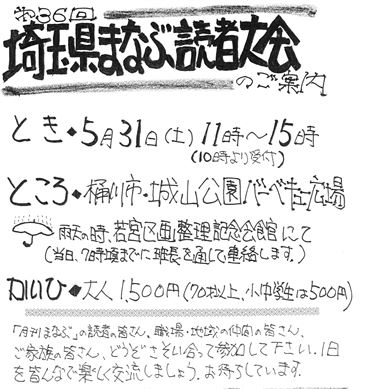 第36回
埼玉県まなぶ読者大会
のご案内
とき◆5月31日(土)11時～15時
(10時より受付)
ところ◆桶川市・城山公園バーベキュー広場
雨天の時、若宮区画整理記念会館にて
(当日、7時頃までに班長を通して連絡します。)
かいひ◆大人1,500円(70才以上、小中学生は500円)
「月刊まなぶ」の読者の皆さん、職場・地域の仲間の皆さん、
ご家族の皆さん、どうぞさそい合って参加して下さい。1日
を皆んなで楽しく交流しましょう。お待ちしています。